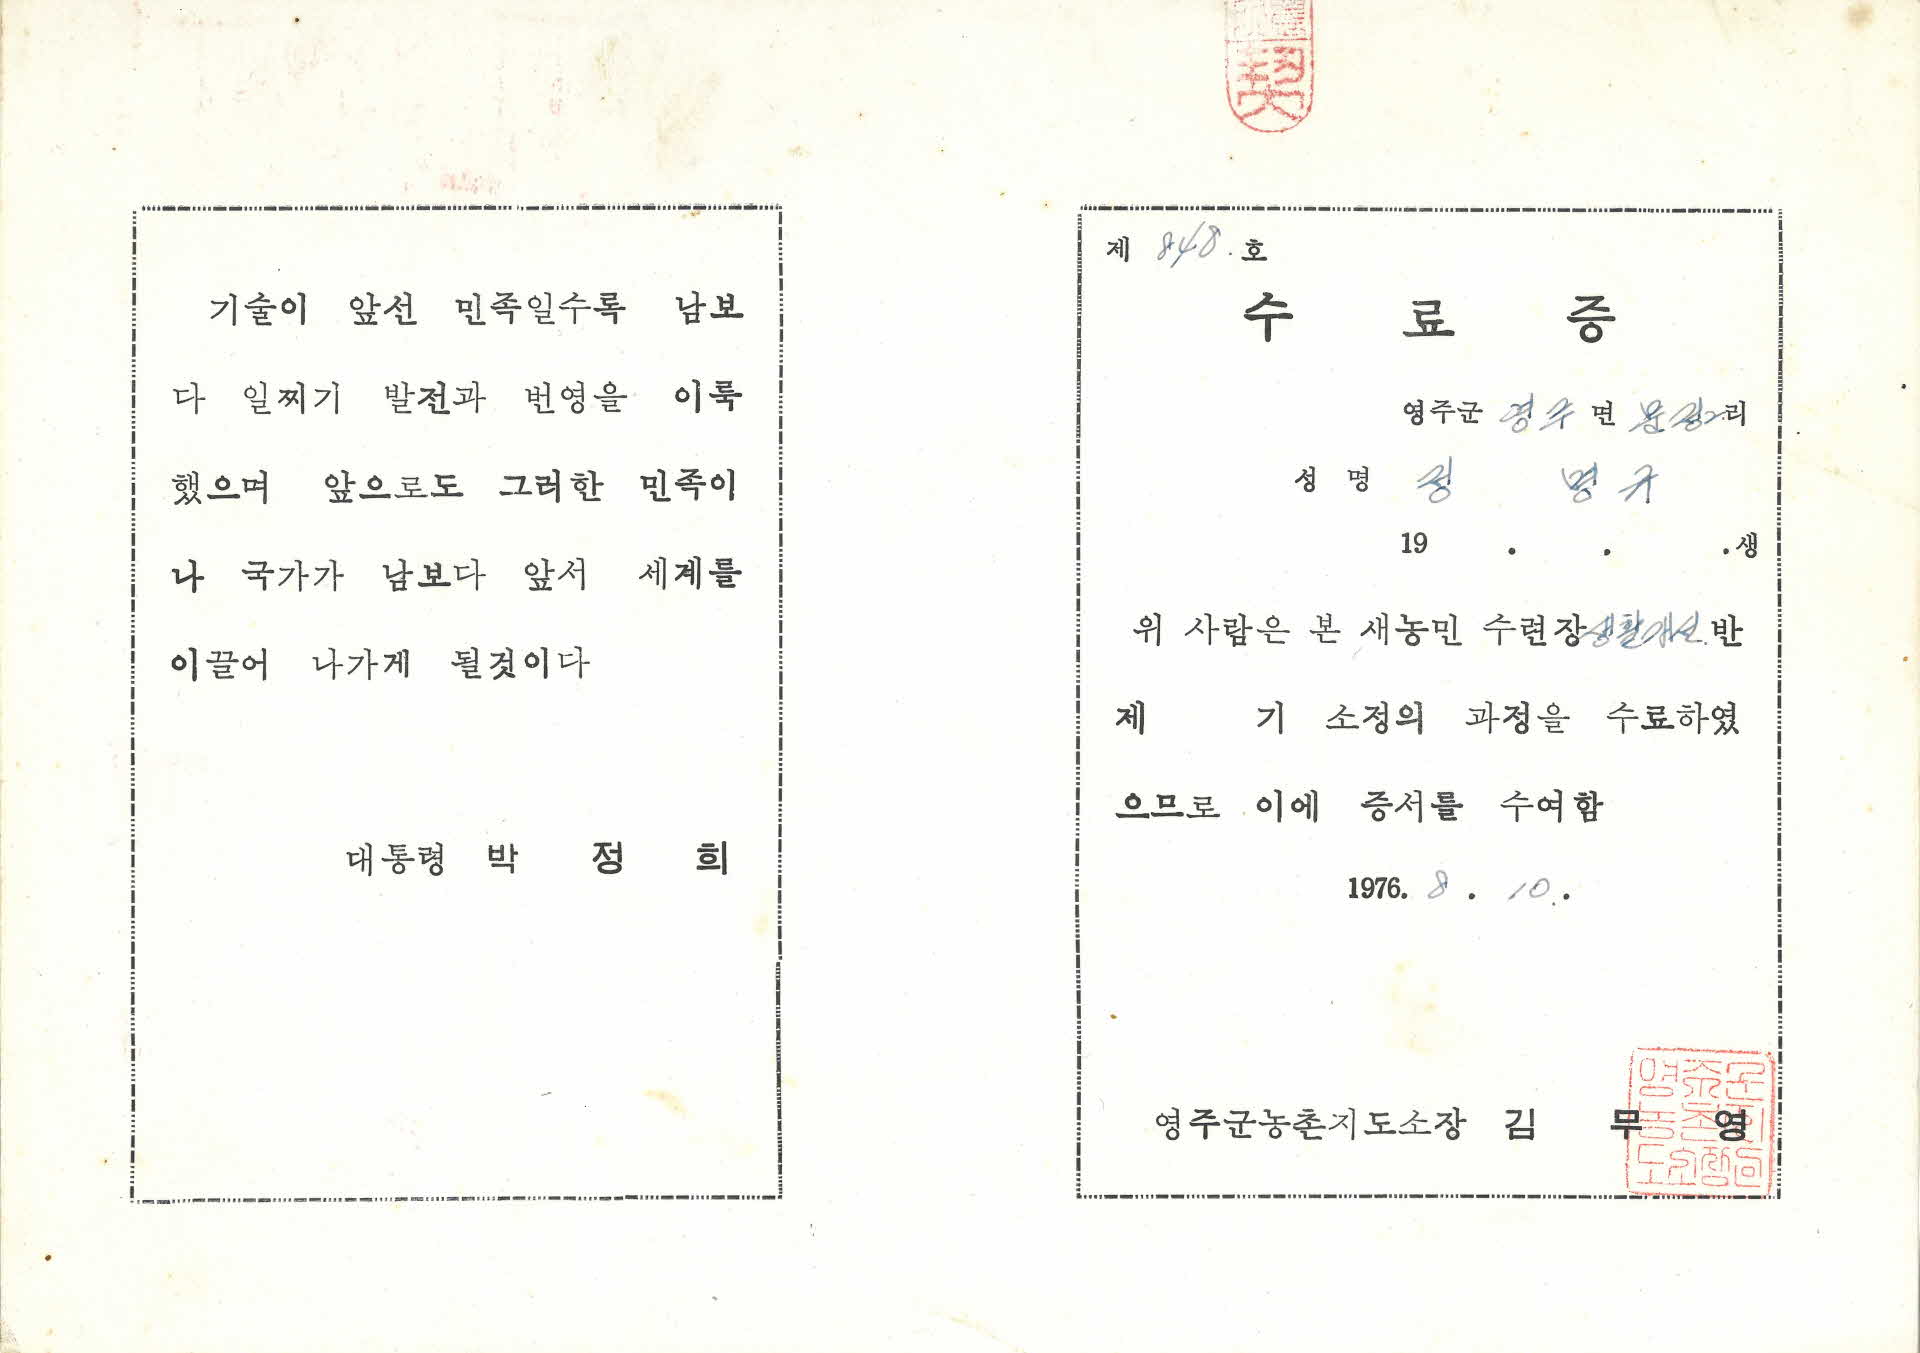 기술이 앞선 민족일수록 남보
다 일찌기 발전과 번영을 이룩
했으며 앞으로도 그러한 민족이
나 국가가 남보다 앞서 세계를
이끌어 나가게 될것이다
대통령 박 정 희
契
제 848. 호
수 료 증
영주군 영주 면 문정 리
성 명 정 명 규
19 . . . 생
위 사람은 본 새농민 수련장 생활개선 반
제 기 소정의 과정을 수료하였
으므로 이에 증서를 수여함
1976. 8 . 10 .
영주군농촌지도소장 김 무 영
영주군
농촌지
도소장인